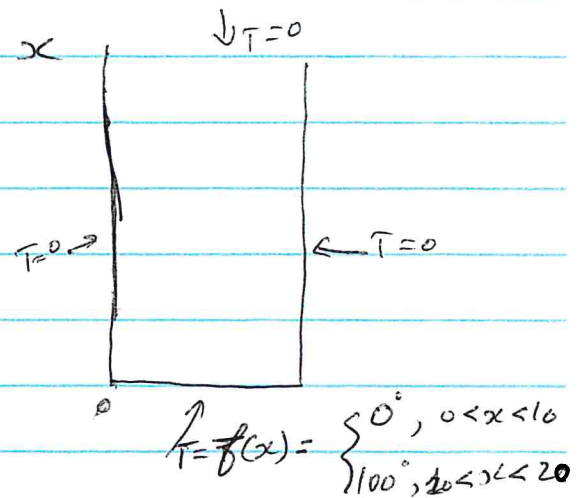 x
↓T=0
T=0 →
← T=0
0
T=f(x)= { 0°, 0<x<10
100°, 10<x<20